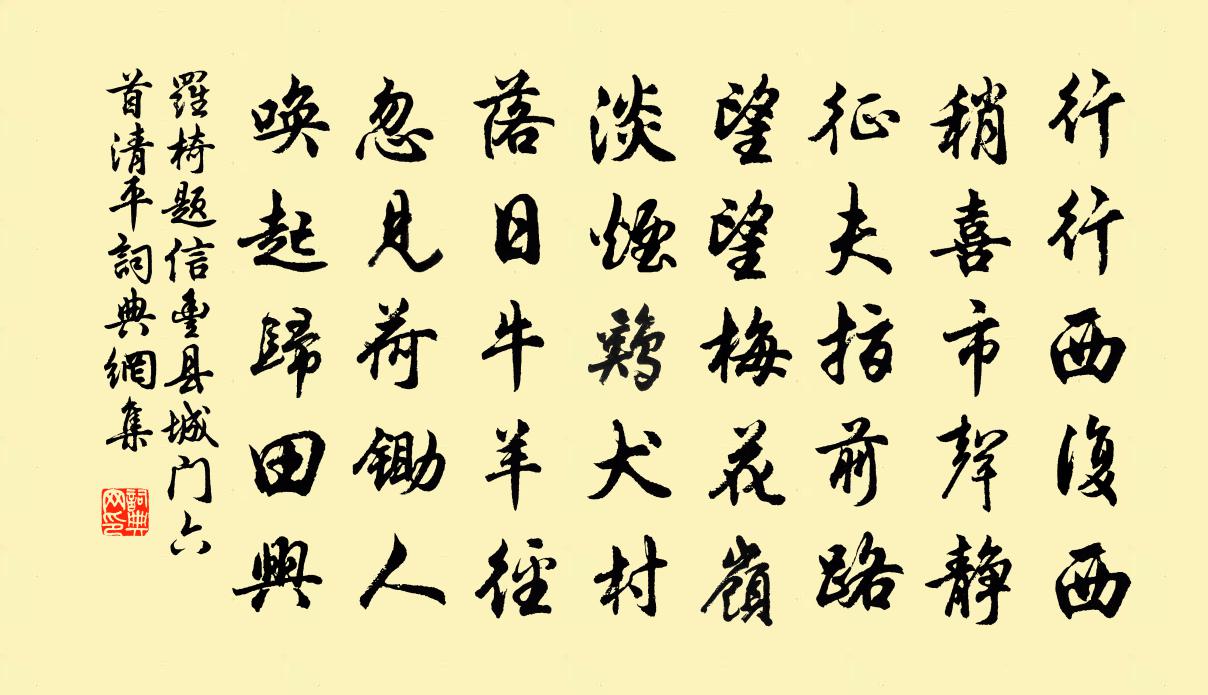 行行西復西
稍喜市聲静
征夫指前路
望望梅花嶺
淡煙鷄犬村
落日牛羊徑
忽見荷鋤人
唤起歸田興
羅椅題信豊县城门六
首清平詞典網集
詞典网印